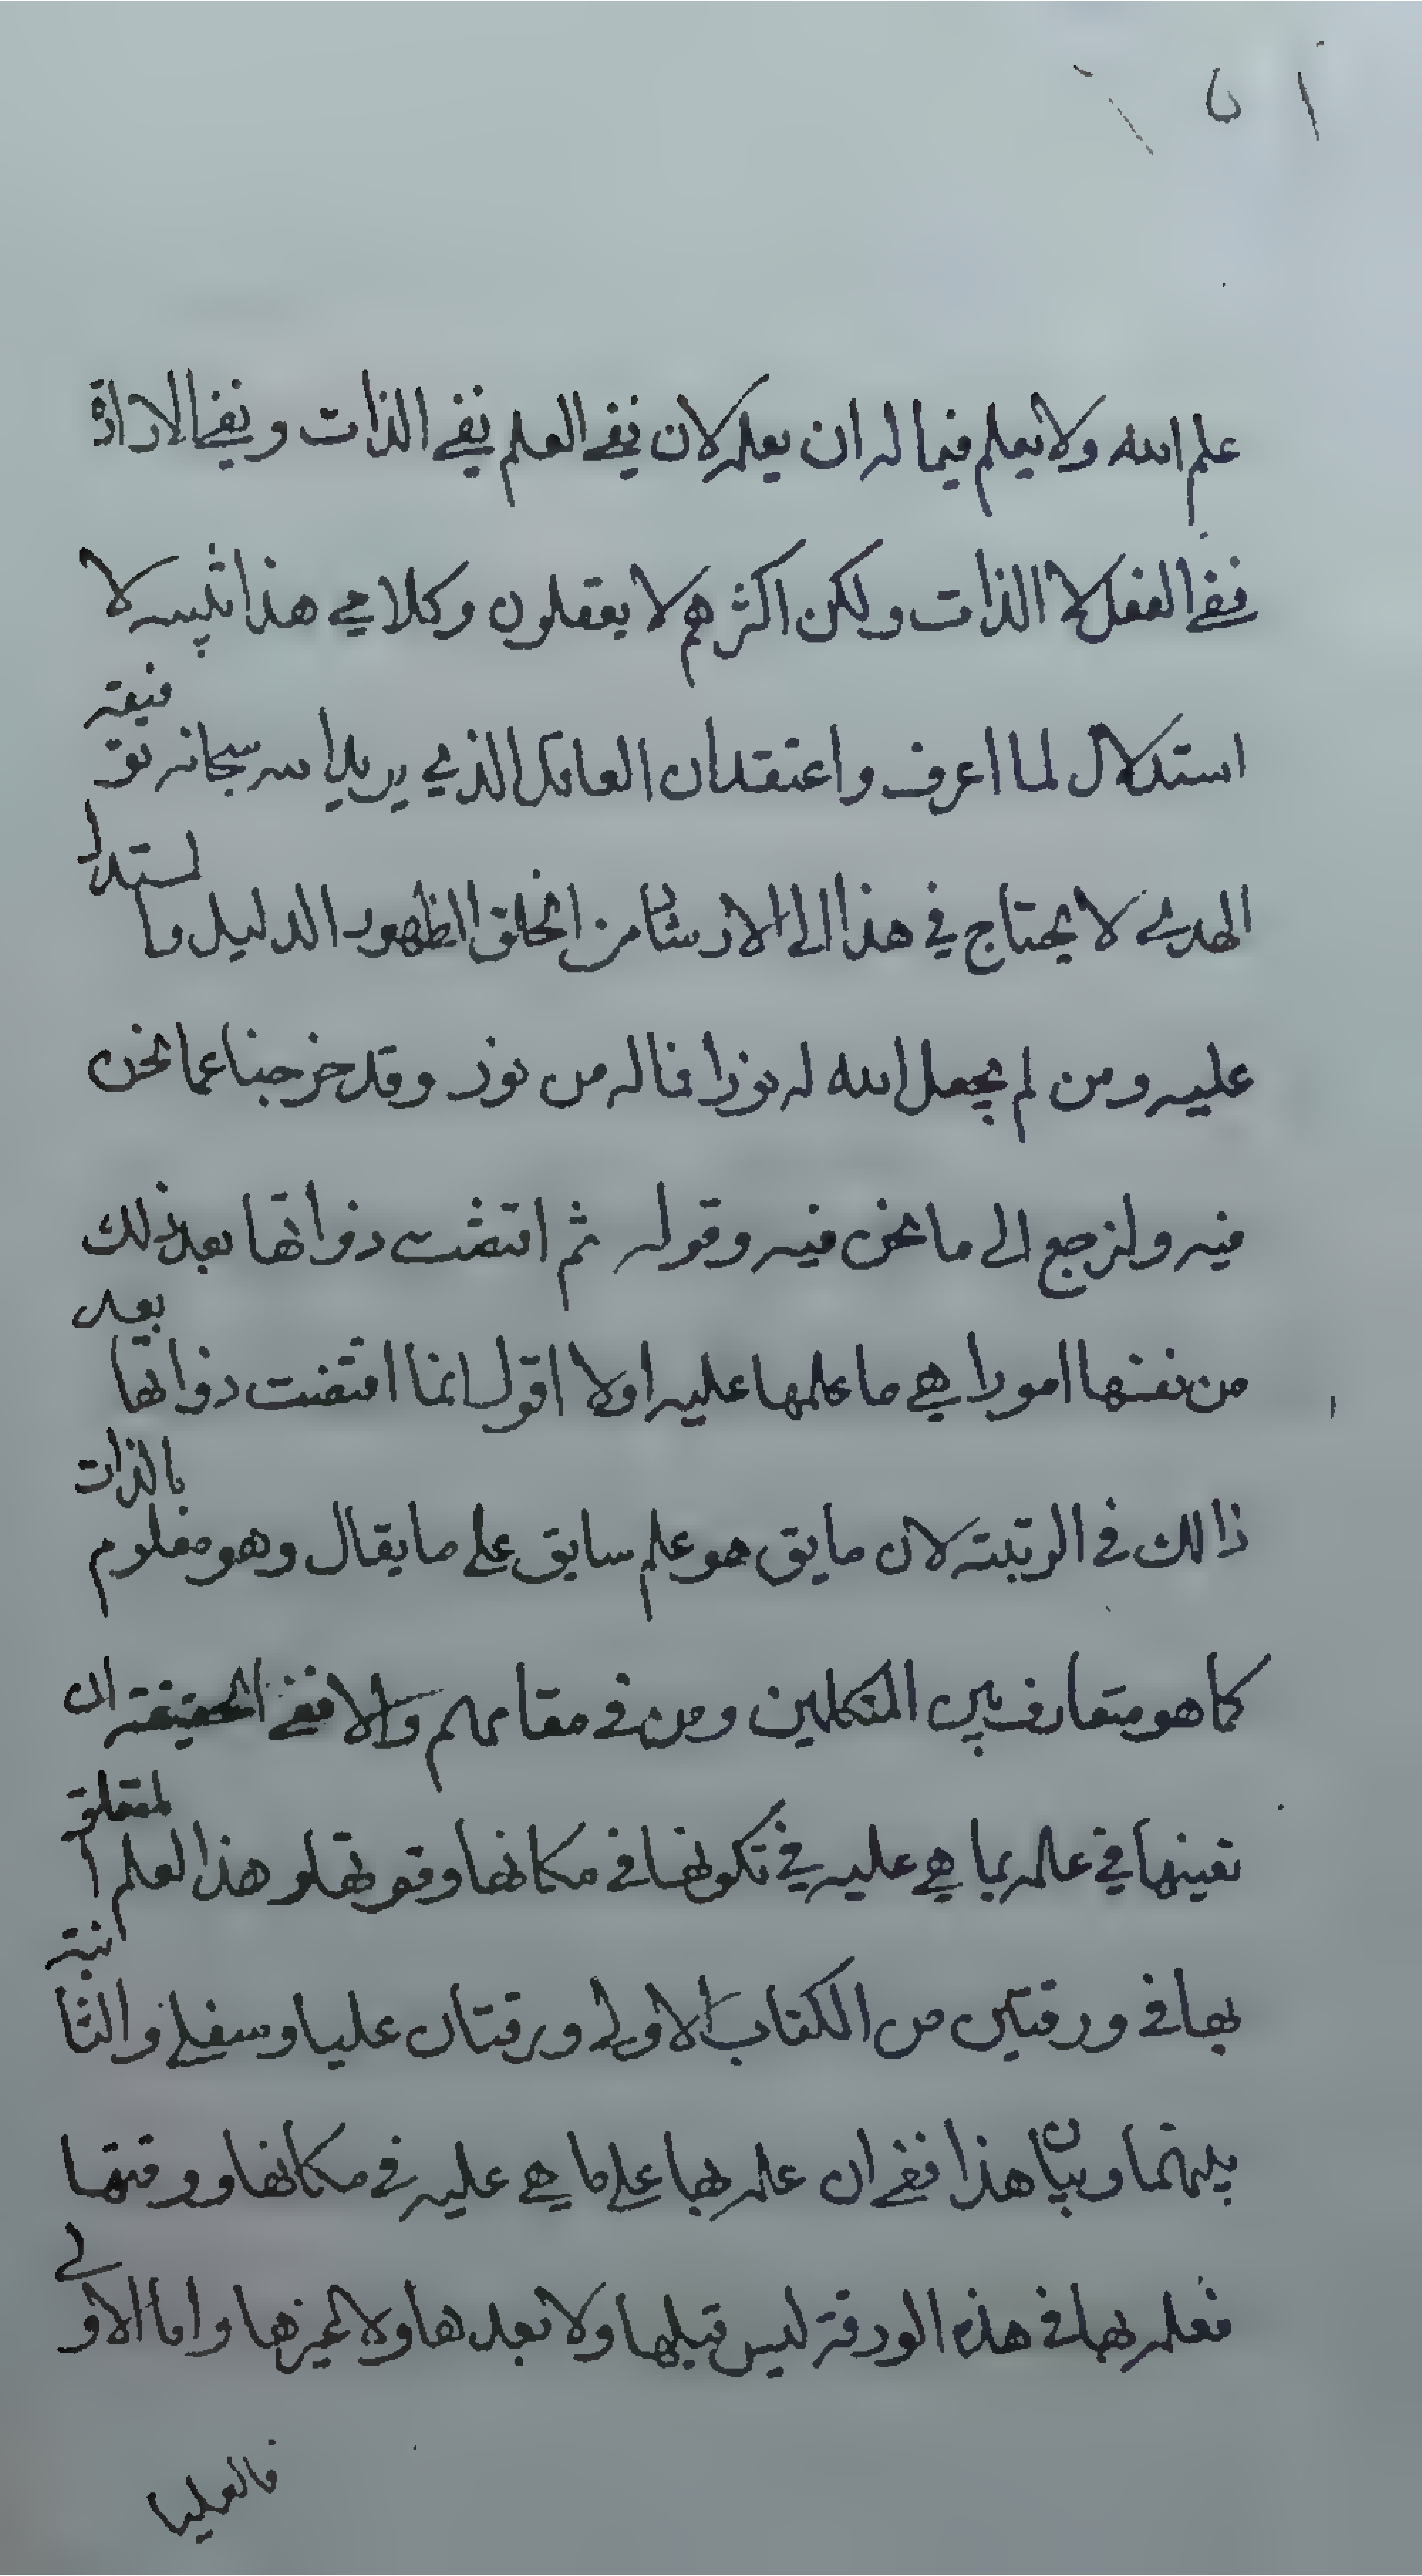 علم الله ولا يعلم فيما له ان يعلم لان نفي العلم نفي الذات ونفي الارادة
نفي الفعل لا الذات ولكن اكثرهم لا يعقلون وكلامي هذا تنبيه لا
استدلال لما اعرف واعتقد ان العاقل الذي يريد الله سبحانه توفيقه
الهدى لا يحتاج في هذا الى الارشاد من الخلق لظهور الدليل وما استدل
عليه ومن لم يجعل الله له نورا فما له من نور وقد خرجنا عما نحن
فيه ولنرجع الى ما نحن فيه وقوله ثم اقتضت ذواتها بعد ذلك
من نفسها امورا هي ما علمها عليه اولا اقول انما اقتضت ذواتها بعد
ذالك في الرتبة لان مايق هو علم سابق على ما يقال وهو معلوم بالذات
كما هو متعارف بين المتكلمين ومن في مقامهم والا ففي الحقيقة ان
تعينها في علمه بما هي عليه في تكونها في مكانها وقوتها و هذا لعلم المتعلق
بها في ورقتين من الكتاب الاولى ورقتان عليا وسفلى والثانية
بينهما وبيان هذا ففي ان علمه بها على ما هي عليه في مكانها ووقتها
فعلمه بها في هذه الورقة ليس قبلها ولا بعدها ولا غيرها واما الاولى
فالعليا